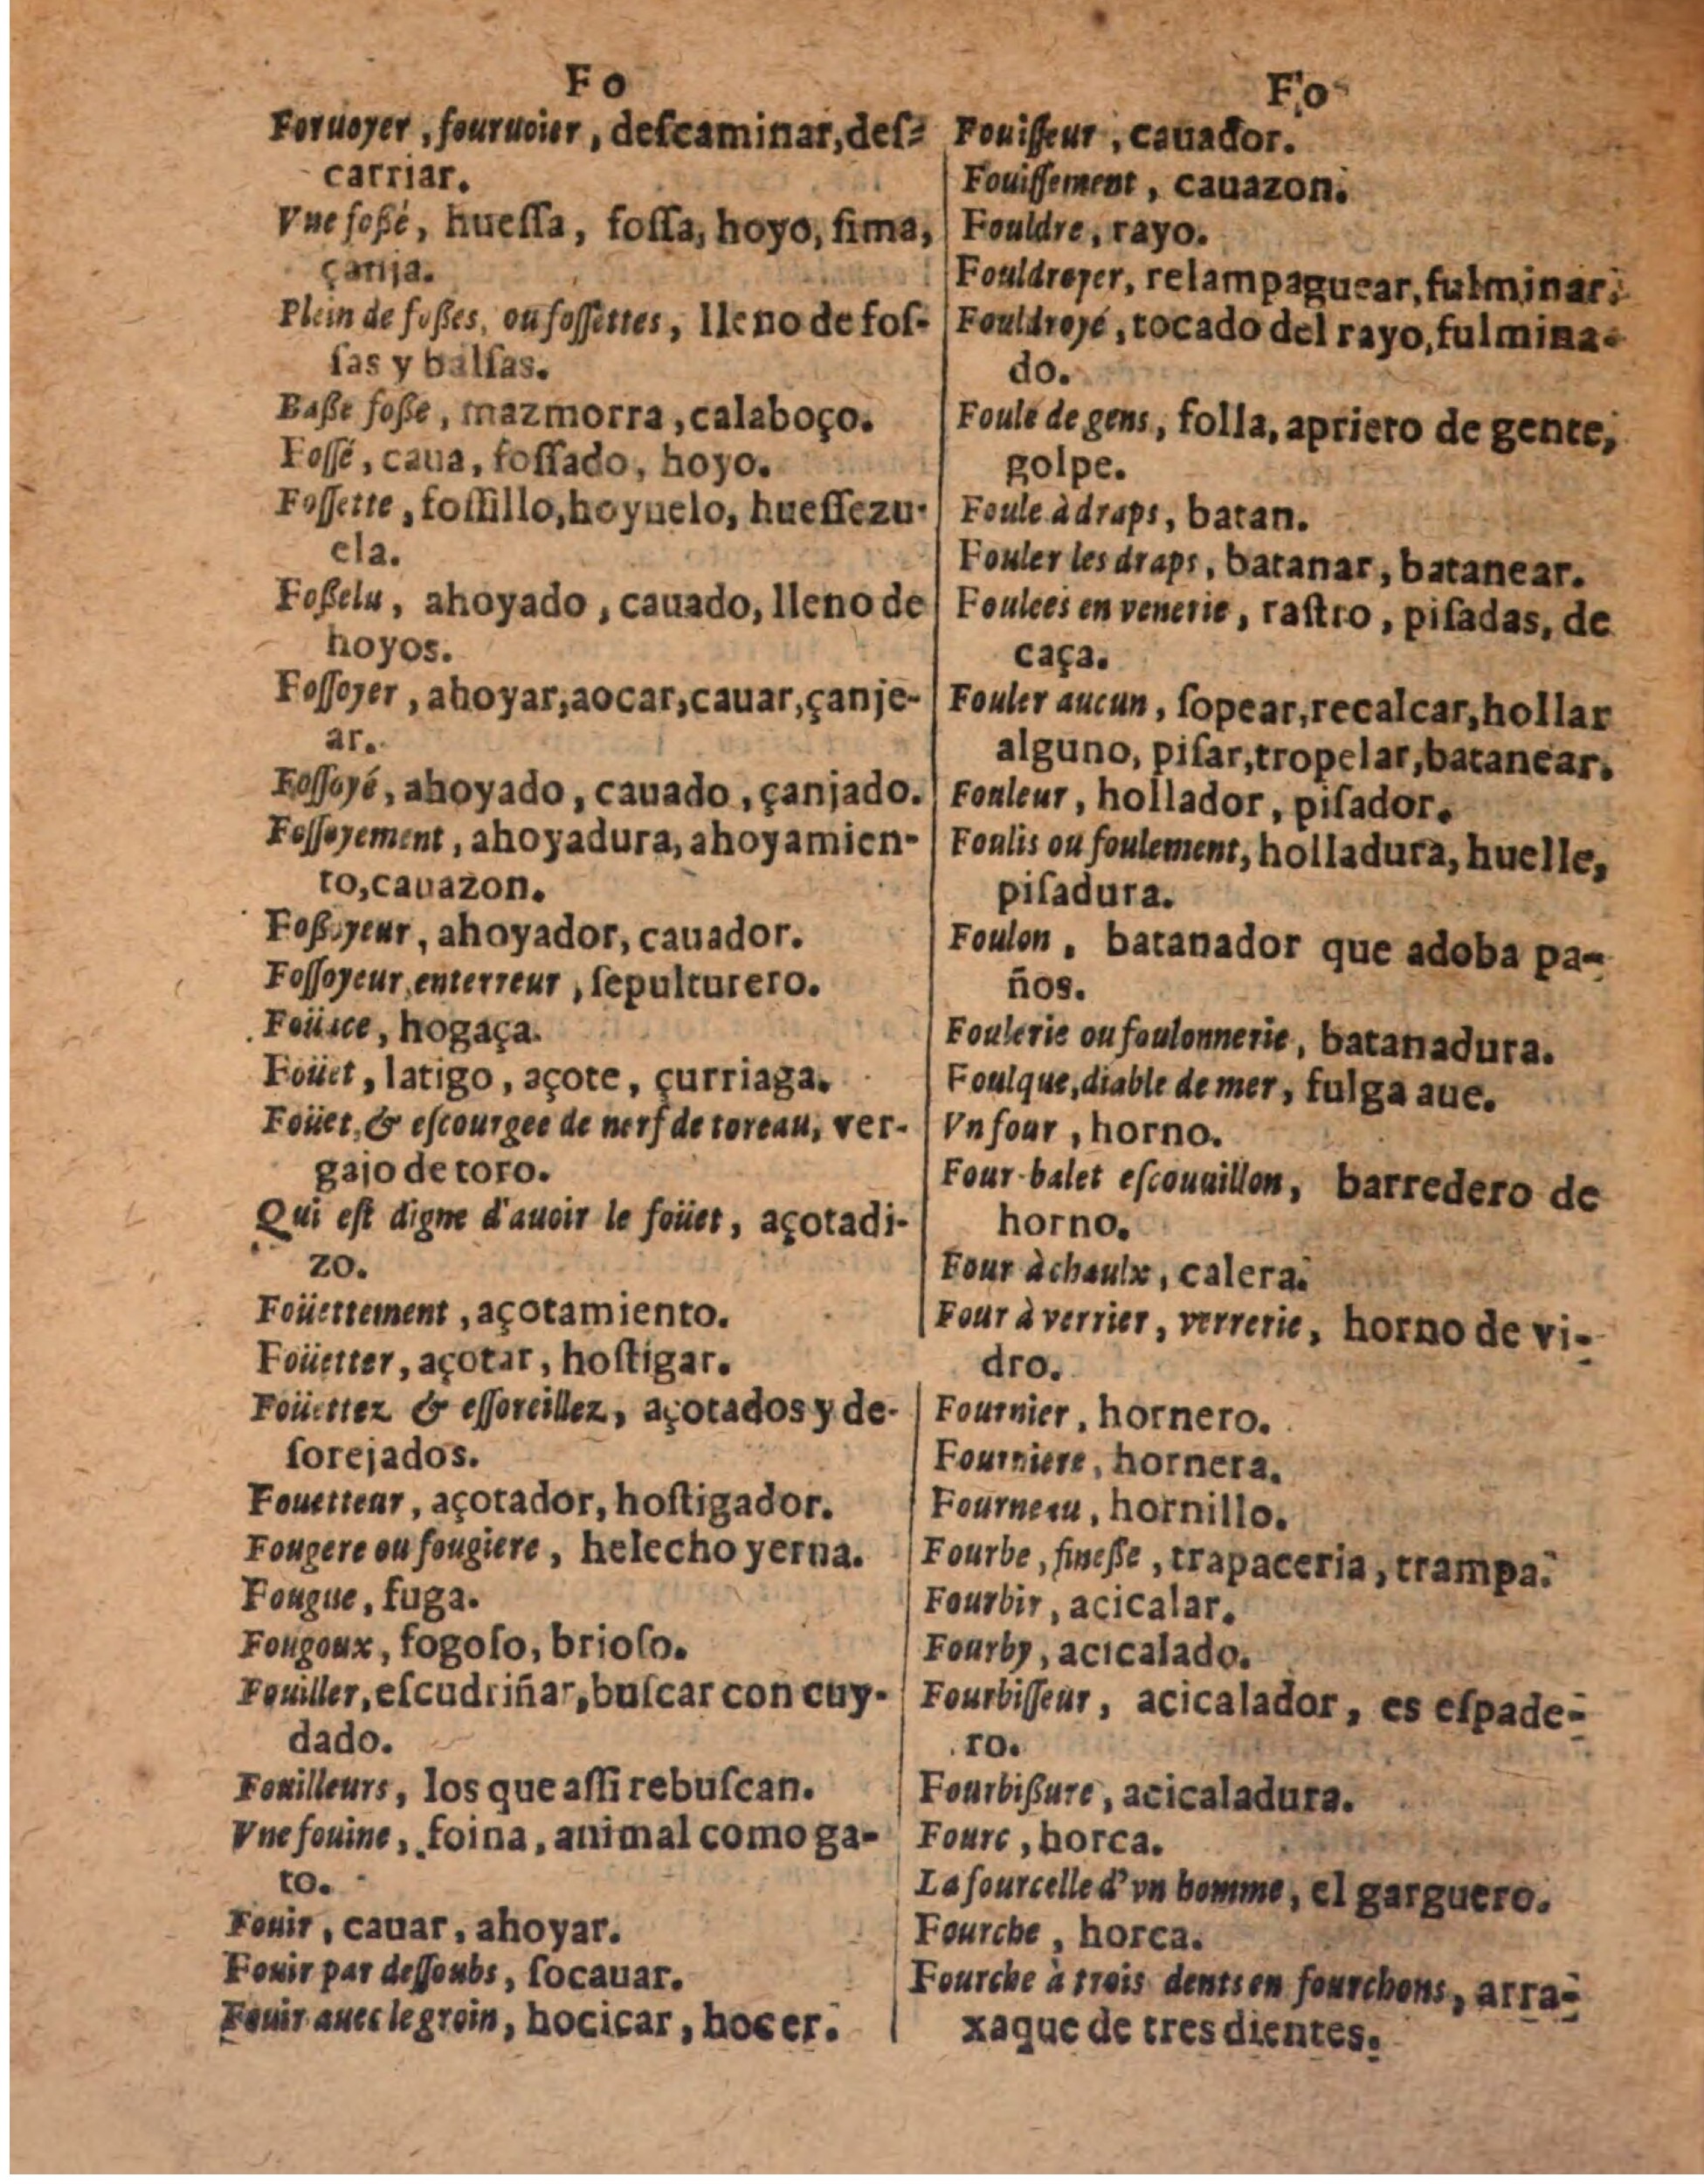 Fo
Foruoyer, fouruoier, deſcaminar, deſ-
carriar.
Vne foßé, hueſſa, foſſa, hoyo, ſima,
çanja.
Plein de foßes, ou foſſettes, lleno de foſ-
ſas y balſas.
Baße foße, mazmorra, calaboço.
Foſſé, caua, foſſado, hoyo.
Foſſette, foſſillo, hoyuelo, hueſſezu-
ela.
Foßelu, ahoyado, cauado, lleno de
hoyos.
Foſſoyer, ahoyar, aocar, cauar, çanje-
ar.
Foſſoyé, ahoyado, cauado, çanjado.
Foſſoyement, ahoyadura, ahoyamien-
to, cauazon.
Foßoyeur, ahoyador, cauador.
Foſſoyeur, enterreur, ſepulturero.
Foüace, hogaça.
Foüet, latigo, açote, çurriaga.
Foüet, & eſcourgee de nerf de toreau, ver-
gajo de toro.
Qui eſt digne d'auoir le foüet, açotadi-
zo.
Foüettement, açotamiento.
Foüetter, açotar, hoſtigar.
Foüettez & eſſoreillez, açotados y de-
ſorejados.
Fouetteur, açotador, hoſtigador.
Fougere ou fougiere, helecho yerua.
Fougue, fuga.
Fougoux, fogoſo, brioſo.
Fouiller, eſcudriñar, buſcar con cuy-
dado.
Fouilleurs, los que aſſi rebuſcan.
Vne fouine, foina, animal como ga-
to.
Fouir, cauar, ahoyar.
Fouir par deſſoubs, ſocauar.
Fouir auec le groin, hocicar, hocer.
Fo
Fouiſſeur, cauador.
Fouiſſement, cauazon.
Fouldre, rayo.
Fouldroyer, relampaguear, fulminar.
Fouldroyé, tocado del rayo, fulmina-
do.
Foule de gens, folla, aprieto de gente,
golpe.
Foule à draps, batan.
Fouler les draps, batanar, batanear.
Foulees en venerie, raſtro, piſadas, de
caça.
Fouler aucun, ſopear, recalcar, hollar
alguno, piſar, tropelar, batanear.
Fouleur, hollador, piſador.
Foulis ou foulement, holladura, huelle,
piſadura.
Foulon, batanador que adoba pa-
ños.
Foulerie ou foulonnerie, batanadura.
Foulque, diable de mer, fulga aue.
Vn four, horno.
Four-balet eſcouuillon, barredero de
horno.
Four à chaulx, calera.
Four à verrier, verrerie, horno de vi-
dro.
Fournier, hornero.
Fourniere, hornera.
Fourneau, hornillo.
Fourbe, fineße, trapaceria, trampa.
Fourbir, acicalar.
Fourby, acicalado.
Fourbiſſeur, acicalador, es eſpade-
ro.
Fourbißure, acicaladura.
Fourc, horca.
La fourcelle d'vn homme, el garguero.
Fourche, horca.
Fourche à trois dents en fourchons, arra-
xaque de tres dientes.